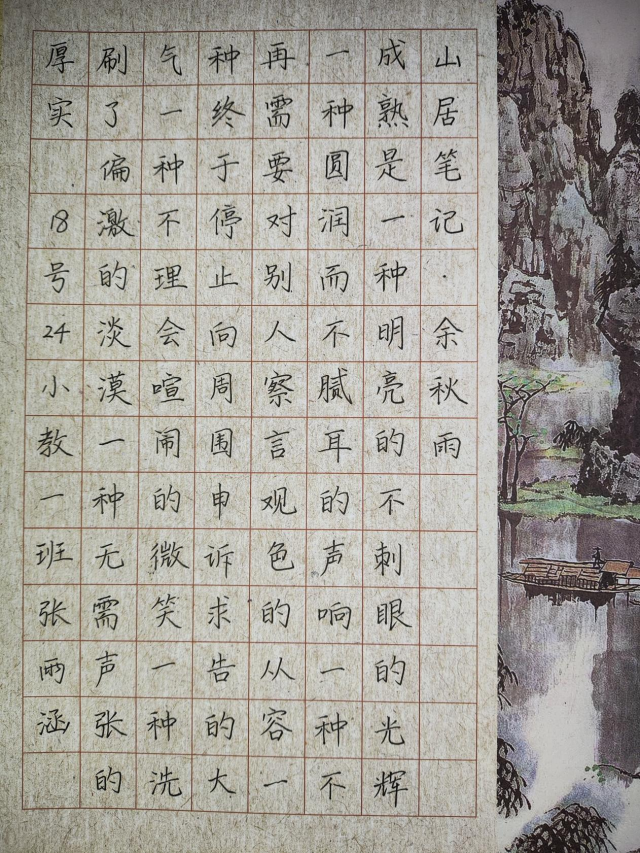 山居笔记·余秋雨
成熟是一种明亮的不刺眼的光辉
一种圆润而不腻耳的声响一种不
再需要对别人察言观色的从容一
种终于停止向周围申诉求告的大
气一种不理会喧闹的微笑一种洗
刷了偏激的淡漠一种无需声张的
厚实 18号24小教一班张雨涵